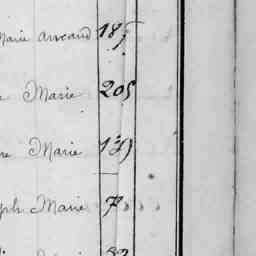 Marie arveaud 187
e Marie 205
re Marie 139
ph Marie 7 " "
82